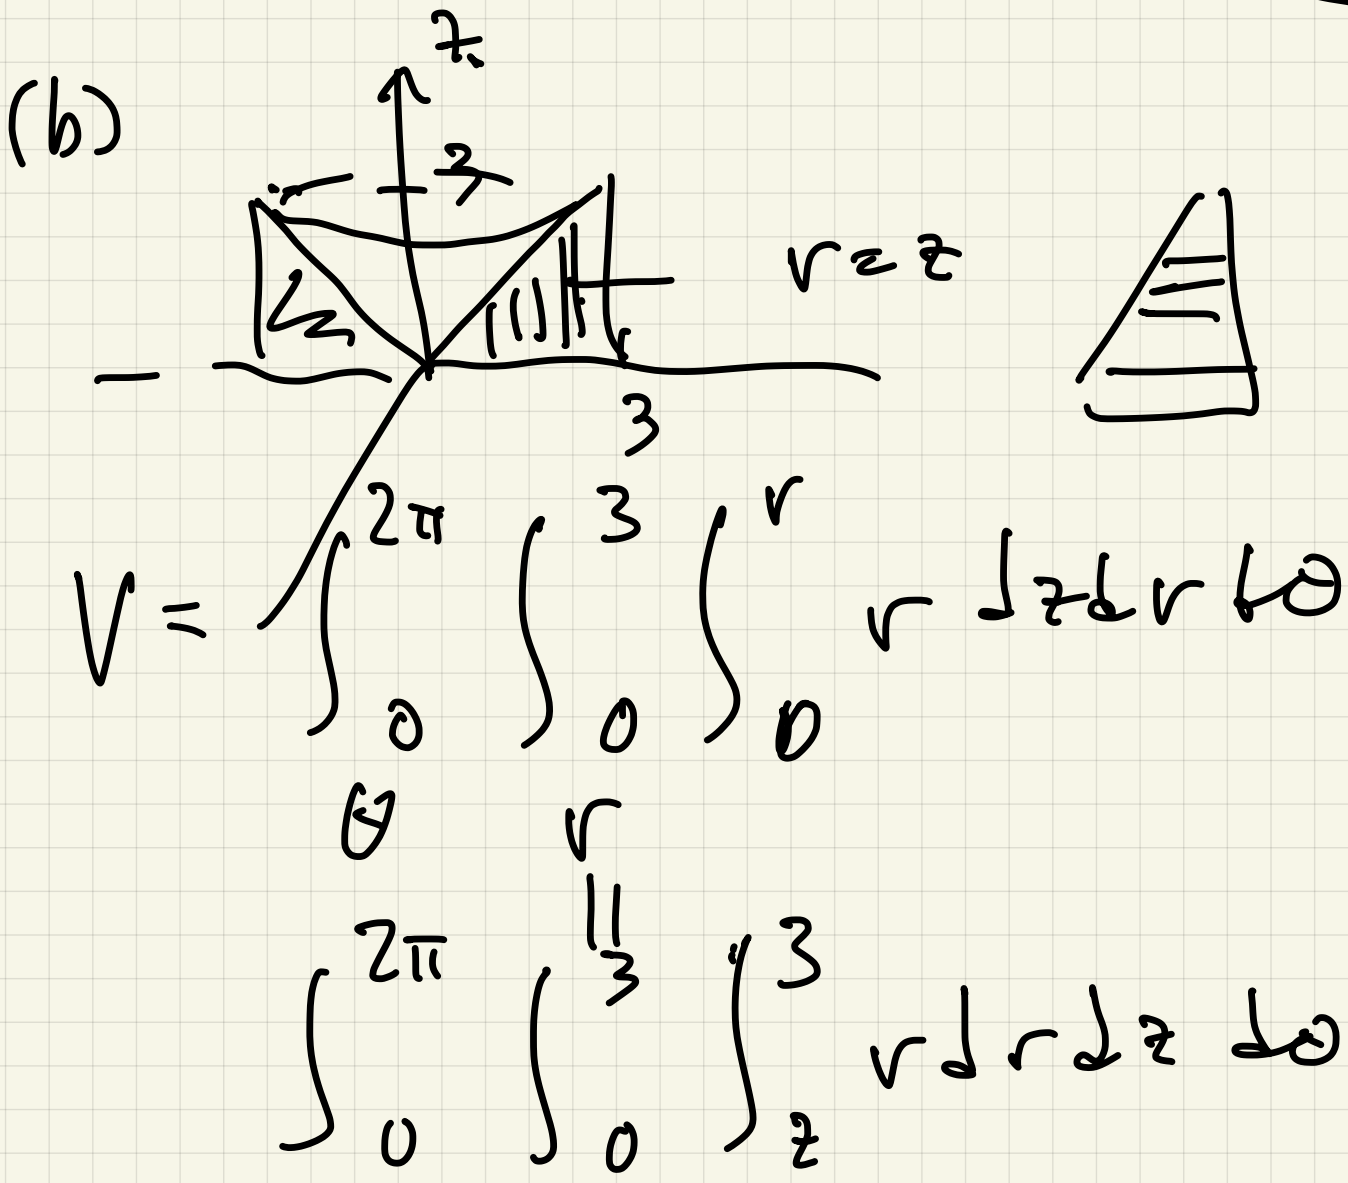 (b)
z
3
r = z
3
V = ∫₀^{2π} ∫₀^3 ∫₀^r r dz dr dθ
θ r
||
∫₀^{2π} ∫₀^3 ∫_z^3 r dr dz dθ